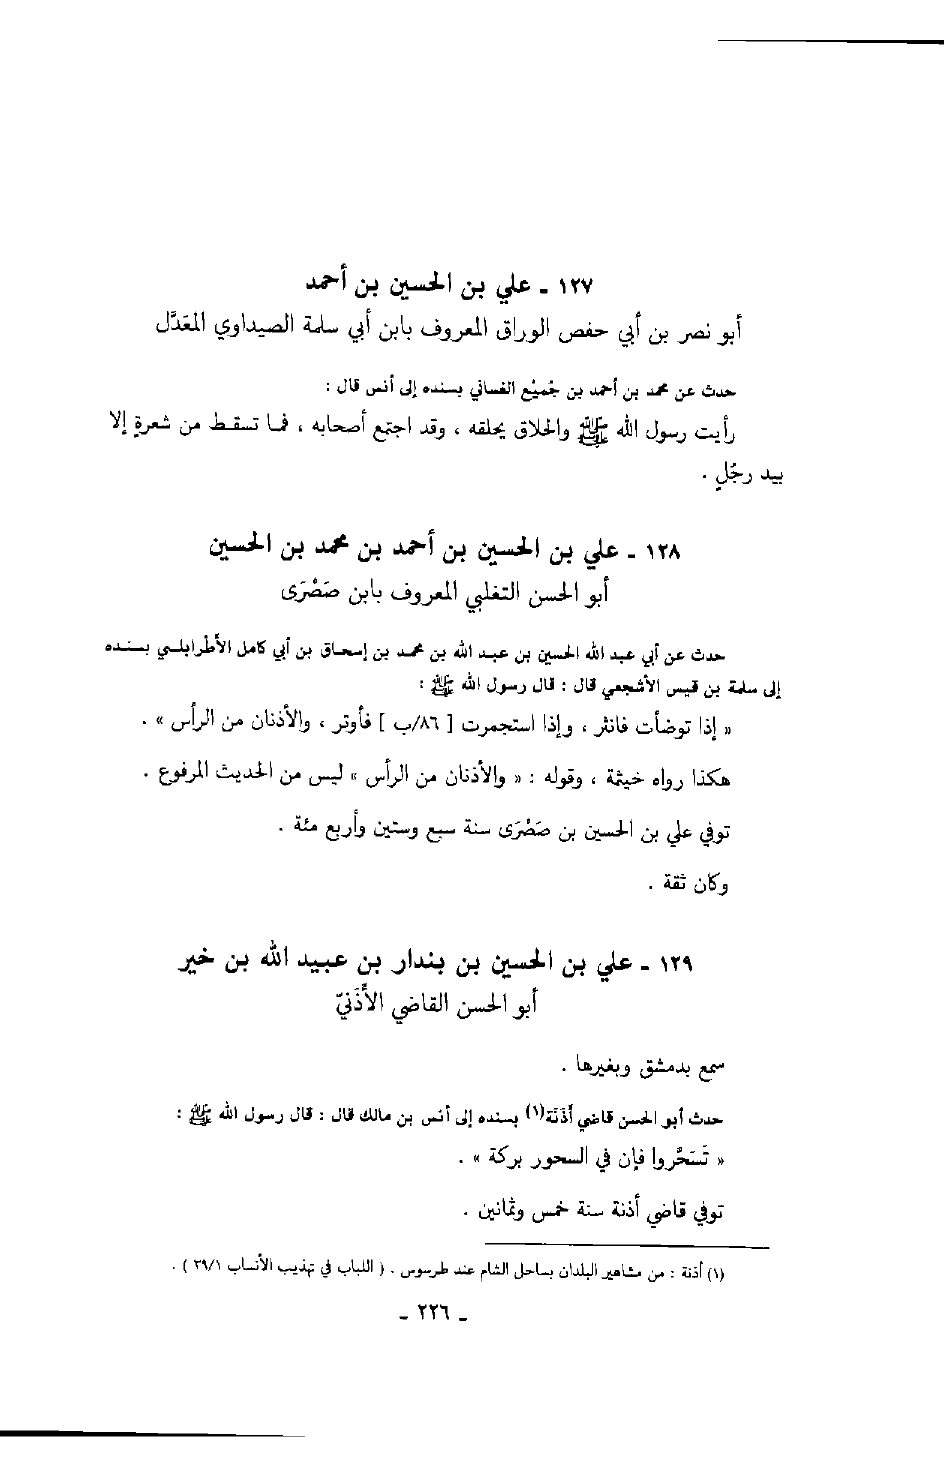 ١٢٧ ـ علي بن الحسين بن أحمد
أبو نصر بن أبي حفص الوراق المعروف بابن أبي سلمة الصيداوي المعَدَّل
حدث عن محمد بن أحمد بن جُميْع الغساني بسنده إلى أنس قال :
رأيت رسول الله ﷺ والحلاق يحلقه ، وقد اجتمع أصحابه ، فما تسقط من شعرةٍ إلا
بيد رجُلٍ .
١٢٨ ـ علي بن الحسين بن أحمد بن محمد بن الحسين
أبو الحسن التغلبي المعروف بابن صَصْرَى
حدث عن أبي عبد الله الحسين بن عبد الله بن محمد بن إسحاق بن أبي كامل الأطْرابلسي بسنده
إلى سلمة بن قيس الأشجعي قال : قال رسول الله ﷺ :
« إذا توضأت فانثر ، وإذا استجمرت [ ٨٦/ب ] فأوتر ، والأذنان من الرأس » .
هكذا رواه خيثمة ، وقوله : « والأذنان من الرأس » ليس من الحديث المرفوع .
توفي علي بن الحسين بن صَصْرَى سنة سبع وستين وأربع مئة .
وكان ثقة .
١٢٩ ـ علي بن الحسين بن بندار بن عبيد الله بن خير
أبو الحسن القاضي الأَذَنيّ
سمع بدمشق وبغيرها .
حدث أبو الحسن قاضي أَذَنَة(١) بسنده إلى أنس بن مالك قال : قال رسول الله ﷺ :
« تَسَحَّروا فإن في السحور بركة » .
توفي قاضي أذنة سنة خمس وثمانين .
(١) أذنة : من مشاهير البلدان بساحل الشام عند طرسوس . ( اللباب في تهذيب الأنساب ٣٩/١ ) .
ـ ٢٢٦ ـ